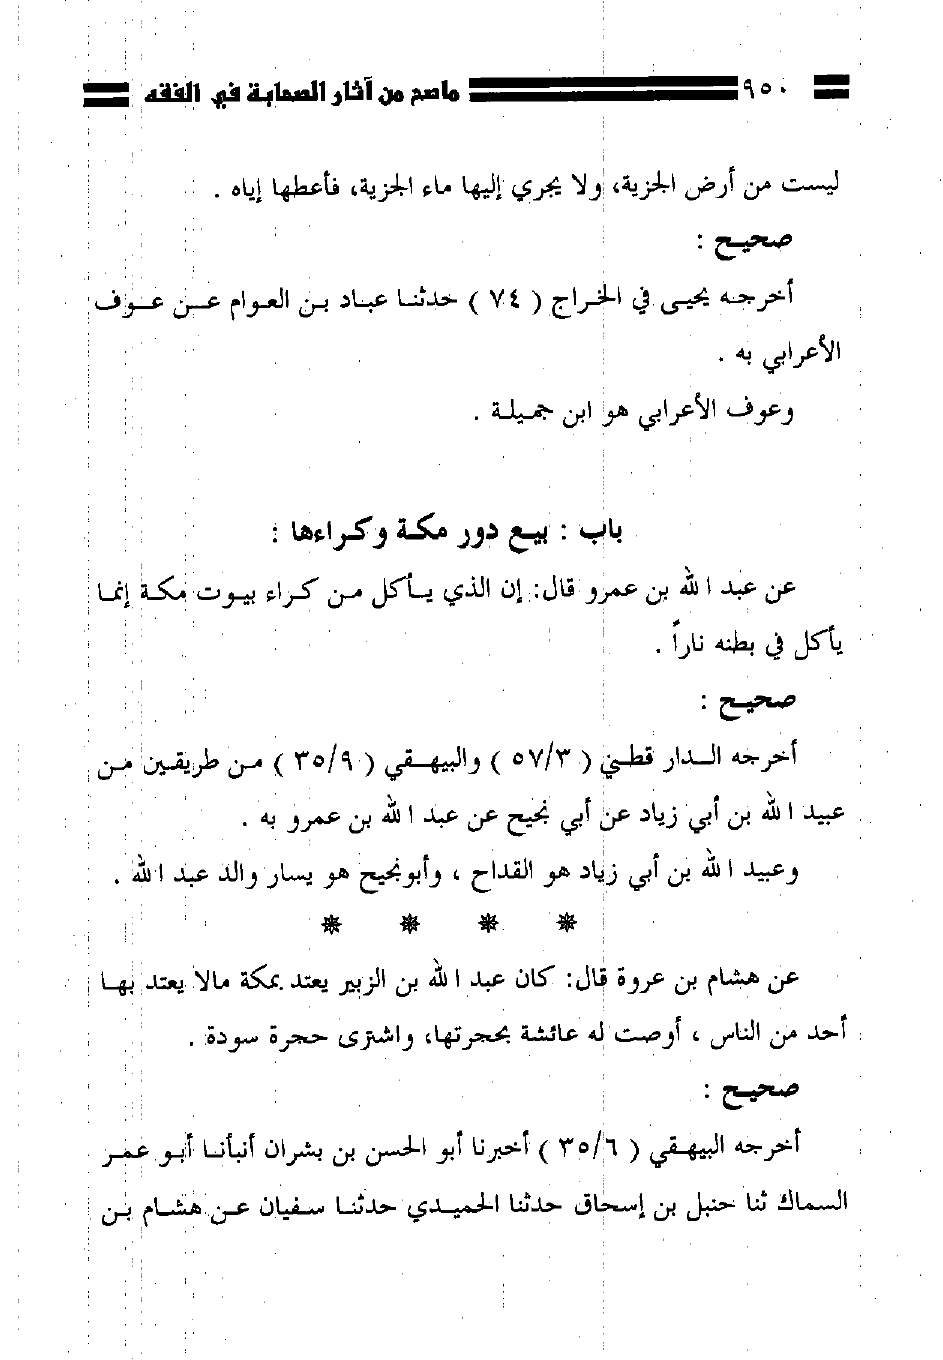 ٩٥٠ ماصح من آثار الصحابة في الفقه
ليست من أرض الجزية، ولا يجري إليها ماء الجزية، فأعطها إياه .
صحيح :
أخرجه يحيى في الخراج ( ٧٤ ) حدثنا عباد بن العوام عن عوف
الأعرابي به .
وعوف الأعرابي هو ابن جميلة .
باب : بيع دور مكة وكراءها :
عن عبد الله بن عمرو قال: إن الذي يأكل من كراء بيوت مكة إنما
يأكل في بطنه ناراً .
صحيح :
أخرجه الدار قطني ( ٥٧/٣ ) والبيهقي ( ٣٥/٩ ) من طريقين من
عبيد الله بن أبي زياد عن أبي نجيح عن عبد الله بن عمرو به .
وعبيد الله بن أبي زياد هو القداح ، وأبونجيح هو يسار والد عبد الله .
عن هشام بن عروة قال: كان عبد الله بن الزبير يعتد بمكة مالا يعتد بها
أحد من الناس ، أوصت له عائشة بحجرتها، واشترى حجرة سودة .
صحيح :
أخرجه البيهقي ( ٣٥/٦ ) أخبرنا أبو الحسن بن بشران أنبأنا أبو عمر
السماك ثنا حنبل بن إسحاق حدثنا الحميدي حدثنا سفيان عن هشام بن